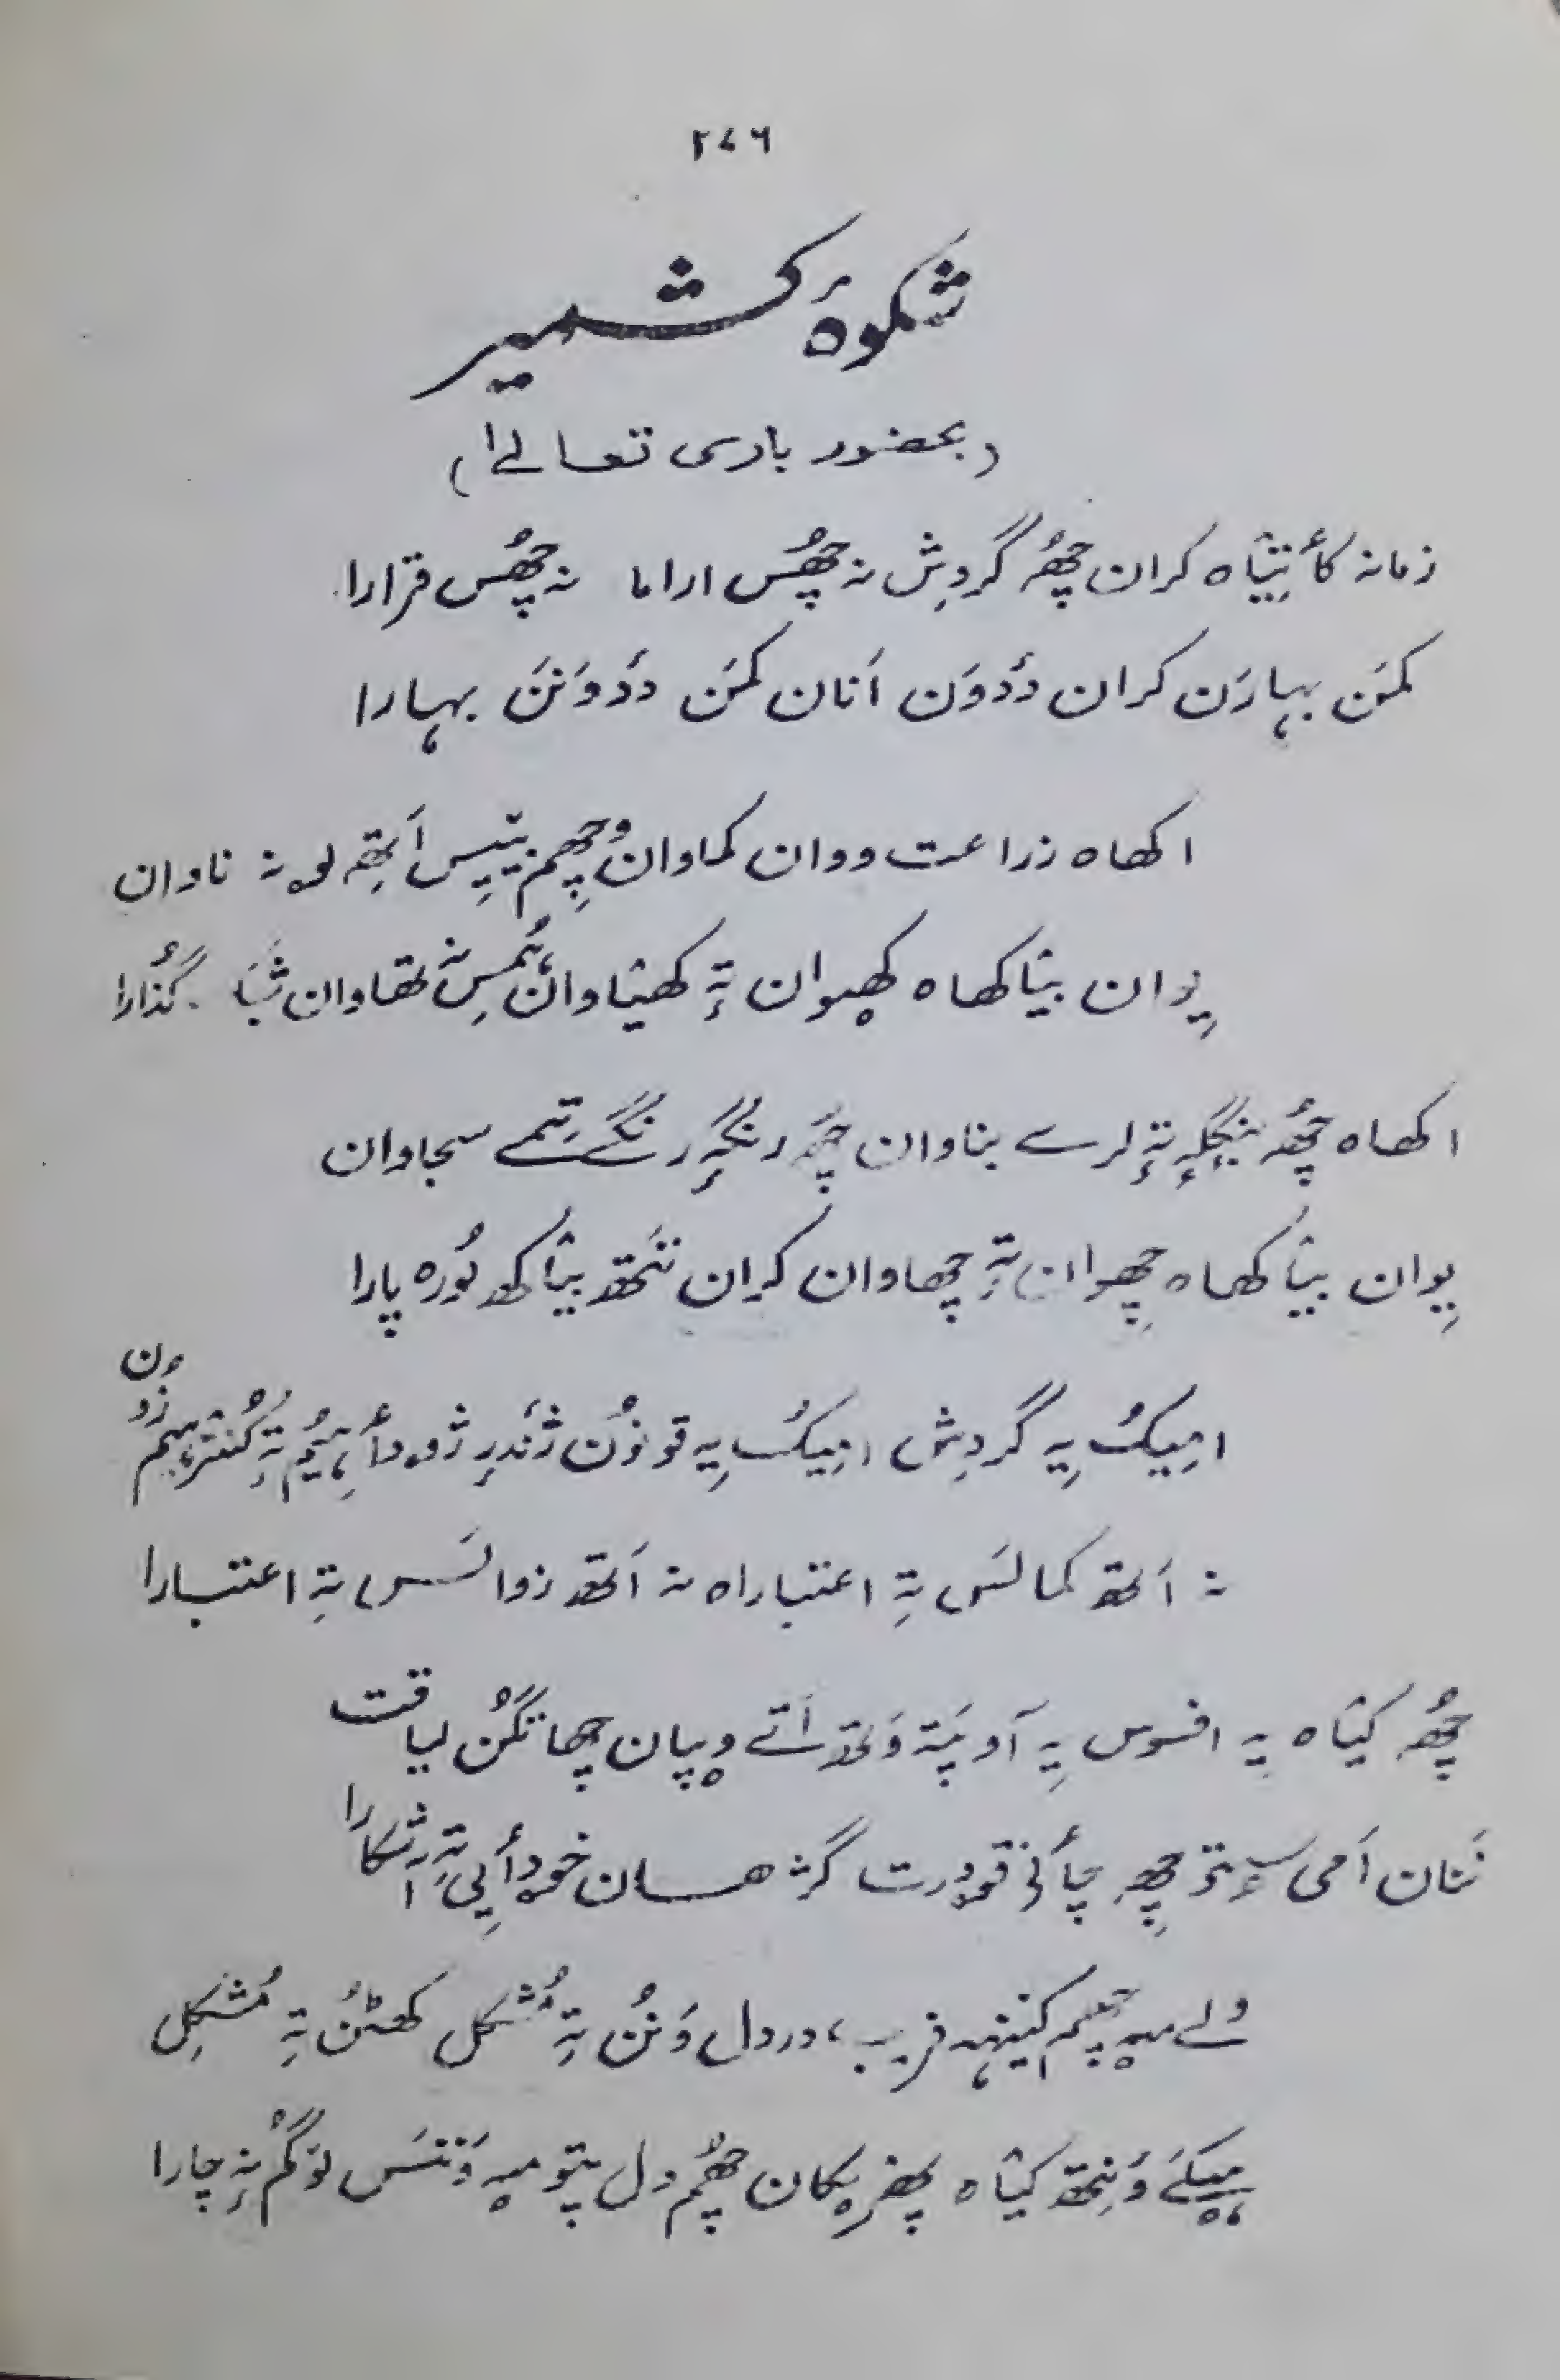 ۲۷۶
شکوۂ کشمیر
(بحضور باری تعالےٰ)
زمانہ کأتیٚاہ کران چھُہ گردِش نہ چھُس اراما نہ چھُس قرارا
کمَن بہارَن کران دٔدوَن اَنان کمَن دٔدوَنَن بہارا
اکھاہ زراعت ووان کماوان وُچھم تِیس اَتھِہ لوہ نہ ناوان
یِوان بیٚاکھاہ کھیوان تہٕ کھیٚاوان ہُمِس نہ تھاوان گُذارا
اکھاہ چھُہ بنگلہٕ تہٕ لرے بناوان چھَہ رنگہٕ رنگے تِمے سجاوان
یِوان بیٚاکھاہ چھِوان تہٕ چھاوان کران تَتھ بیٚاکھ پُورہ پارا
امِیکُے یہ گردِش امِیکُے یہ قونوٗن
نہ اَتھ کمالَس تہِ اعتباراہ نہ اَتھ زوالَس تہِ اعتبارا
چھُہ کیٚاہ یہ افسوس یہِ آو پَتہ وَتھ اَتے وۄپان چھا تگُن لیاقت
نَنان اَمی سۭتۍ چھِہ چأنۍ قودرت گژھان خودأیی تہِ آشکارا
ولے میہ چھم کینہہ فریب، دردل وَنُن تہِ مُشکل کھٹُن تہِ مُشکِل
ہیکَے وَنِتھ کیٚاہ پھریکان چھُم دل پتو میہ وَنتَس لوگُم نہٕ چارا